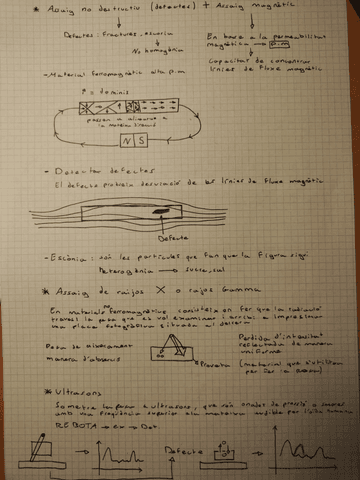 * Assaig no destructiu (defectes) + Assaig magnètic
Defectes: Fractures, escòria
No homogènia
En base a la permeabilitat
magnètica → p.m
Capacitat de concentrar
línies de fluxe magnètic
- Material ferromagnètic alta p.m
↑ = dominis
passen a alinear-se a
la mateixa direcció
N S
- Detectar defectes
El defecte provoca desviació de les línies de fluxe magnètic
Defecte
- Escòria: són les partícules que fan que la figura sigui
heterogènia →
* Assaig de raijos X o rajos Gamma
En materials no ferromagnètics consisteix en fer que la radiació
travessi la peça que es vol examinar i arribi a impresionar
una placa fotogràfica situada al darrera
Peça de
manera d'observar
Proveta
Perdida d'intensitat
reflectada de manera
uniforme
(material que s'utilitzen
per fer la assaig)
* Ultrasons
Sometre la peça a ultrasons, que són ondes de pressió a sonores
amb una freqüència superior a la màxima audible per l'oïda humana
REBOTA → ex → Det.
Defecte